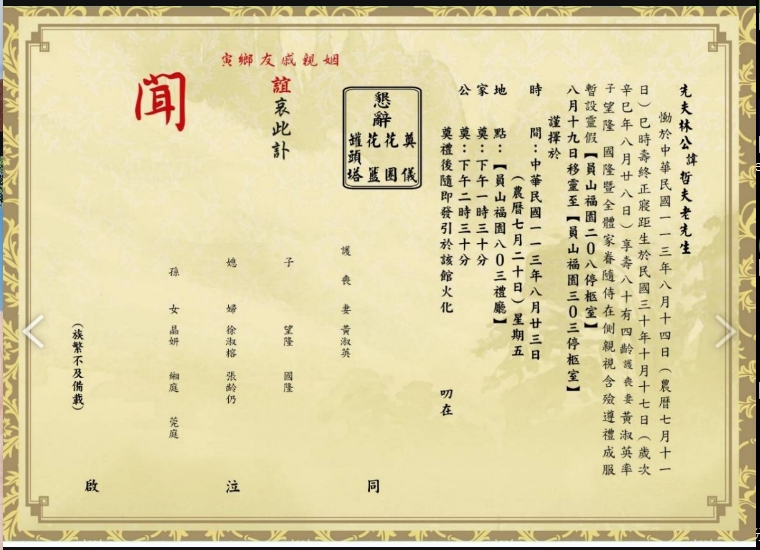 先夫林公諱哲夫老先生
慟於中華民國一一三年八月十四日（農曆七月十一
日）巳時壽終正寢距生於民國三十年十月十七日（歲次
辛巳年八月廿八日）享壽八十有四齡護喪妻黃淑英率
子望隆 國隆暨全體家眷隨侍在側親視含殮遵禮成服
暫設靈假【員山福園二0八停柩室】
八月十九日移靈至【員山福園三0三停柩室】
謹擇於
時 間：中華民國一一三年八月廿三日
（農曆七月二十日）星期五
地 點：【員山福園八0三禮廳】
家 奠：下午一時三十分
公 奠：下午二時三十分
奠禮後隨即發引於該館火化
叨在
懇辭
奠儀
花圈
花籃
罐頭塔
姻親戚友鄉寅
誼哀此訃
聞
護喪妻 黃淑英
子 望隆 國隆
媳婦 徐淑榕 張齡仍
孫女 晶妍 緗庭 莞庭
（族繁不及備載）
同
泣
啟